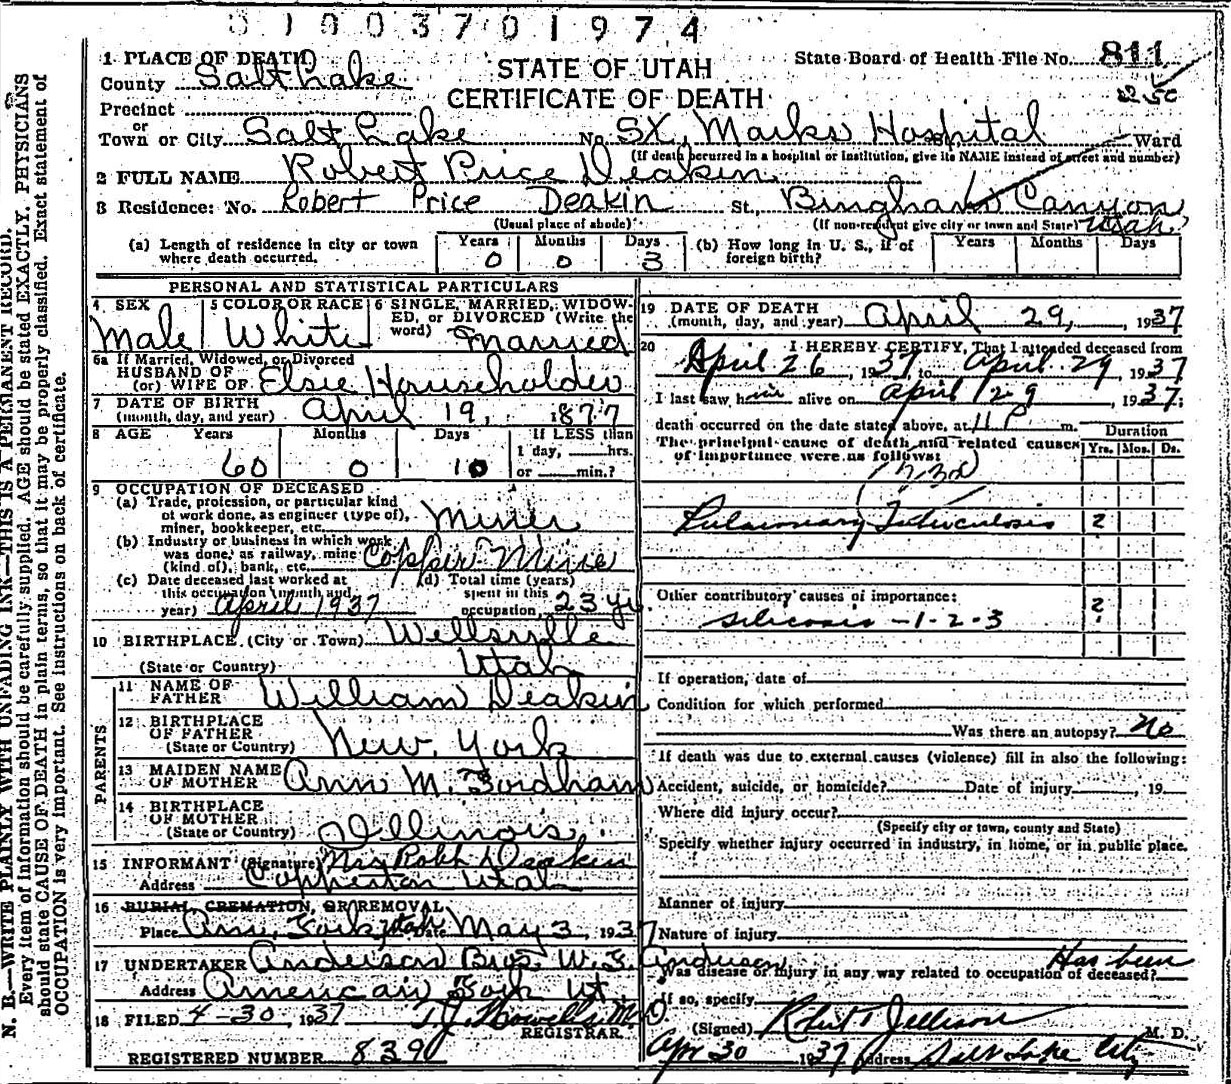 0 1 0 0 3 7 0 1 9 7 4
N. B.—WRITE PLAINLY WITH UNFADING INK—THIS IS A PERMANENT RECORD.
Every item of information should be carefully supplied. AGE should be stated EXACTLY. PHYSICIANS
should state CAUSE OF DEATH in plain terms, so that it may be properly classified. Exact statement of
OCCUPATION is very important. See instructions on back of certificate.
1 PLACE OF DEATH
County Salt Lake
STATE OF UTAH
State Board of Health File No. 811
CERTIFICATE OF DEATH
250
Precinct
Town or City Salt Lake No. St. Marks Hospital Ward
(If death occurred in a hospital or institution, give its NAME instead of street and number)
2 FULL NAME Robert Price Deakin
3 Residence: No. Robert Price Deakin St., Bingham Canyon Utah
(Usual place of abode) (If non-resident give city or town and State)
(a) Length of residence in city or town where death occurred. Years 0 Months 0 Days 3
(b) How long in U. S., if of foreign birth? Years Months Days
PERSONAL AND STATISTICAL PARTICULARS
4 SEX Male
5 COLOR OR RACE White
6 SINGLE, MARRIED, WIDOWED, OR DIVORCED (Write the word) Married
6a If Married, Widowed, or Divorced
HUSBAND OF
(or) WIFE OF Elsie Householder
7 DATE OF BIRTH
(month, day, and year) April 19, 1877
8 AGE Years 60 Months 0 Days 10 If LESS than 1 day, hrs. or min.?
9 OCCUPATION OF DECEASED
(a) Trade, profession, or particular kind
of work done, as engineer (type of),
miner, bookkeeper, etc. Miner
(b) Industry or business in which work
was done, as railway, mine
(kind of), bank, etc. Copper Mine
(c) Date deceased last worked at
this occupation (month and
year) April 1937
(d) Total time (years)
spent in this
occupation, 23 yrs.
10 BIRTHPLACE (City or Town) Wellsville
(State or Country) Utah
PARENTS
11 NAME OF FATHER William Deakin
12 BIRTHPLACE OF FATHER
(State or Country) New York
13 MAIDEN NAME OF MOTHER Ann M. Fordham
14 BIRTHPLACE OF MOTHER
(State or Country) Illinois
15 INFORMANT (Signature) Mrs Robt Deakin
Address Copperton Utah
16 BURIAL, CREMATION, OR REMOVAL
Place Am. Fork, Utah Date May 3, 1937
17 UNDERTAKER Anderson Bros. W. S. Anderson
Address American Fork Ut.
18 FILED 4-30, 1937 M.D.
REGISTRAR
REGISTERED NUMBER 839
19 DATE OF DEATH
(month, day, and year) April 29, 1937
20 I HEREBY CERTIFY, That I attended deceased from
April 26, 1937, to April 29, 1937
I last saw him alive on April 29, 1937;
death occurred on the date stated above, at 11 P m.
Duration
The principal cause of death and related causes of importance were as follows:
Yrs. Mos. Ds.
Pulmonary Tuberculosis 2
Other contributory causes of importance: ?
Silicosis - 1-2-3
If operation, date of
Condition for which performed
Was there an autopsy? No
If death was due to external causes (violence) fill in also the following:
Accident, suicide, or homicide? Date of injury, 19
Where did injury occur?
(Specify city or town, county and State)
Specify whether injury occurred in industry, in home, or in public place.
Manner of injury
Nature of injury
Was disease or injury in any way related to occupation of deceased? Has been
If so, specify
(Signed) Robert T Jellison M. D.
Apr 30 1937 Address Salt Lake City